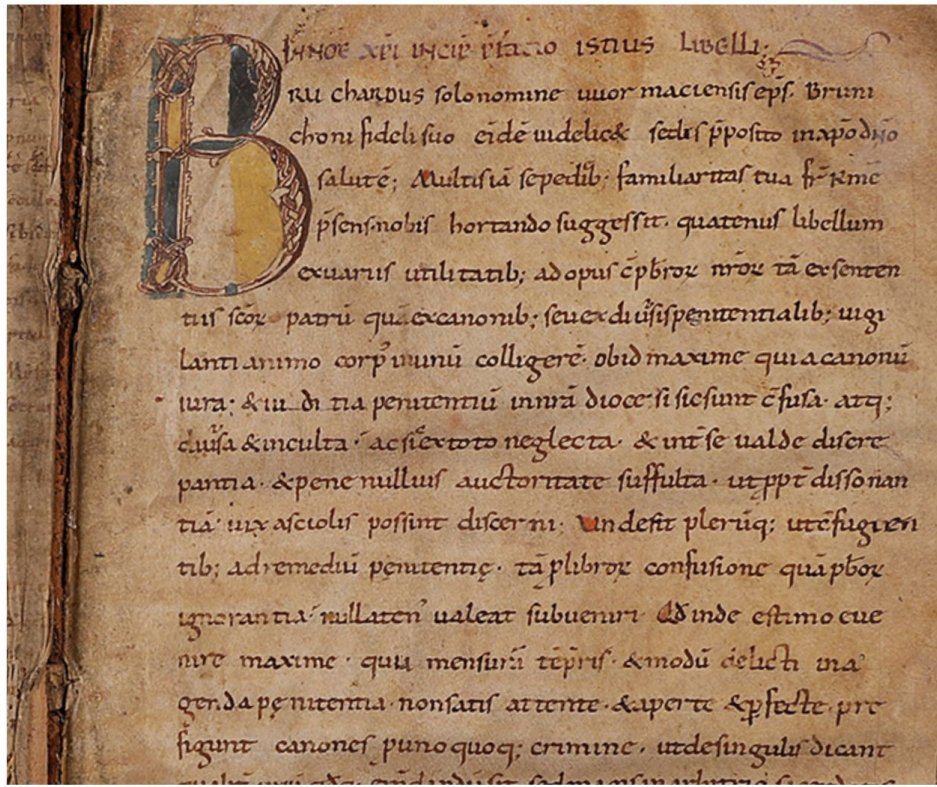 IN NOE XPI INCIP P̄FACIO ISTIUS LIBELLI;
BRUCHARDUS solo nomine uuormaciensis ep̄s. Bruni
choni fideli suo eidē uidelic& sedis p̄posito in xp̄o dn̄o
salutē; Multis iā sepe dieb; familiaritas tua fr̄
p̄sens nobis hortando suggessit. quatenus libellum
ex uariis utilitatib; ad opus c̄pb̄roꝝ nr̄oꝝ tā ex senten
tiis sc̄oꝝ patrū quā ex canonib; seu ex diuersis penitentialib; uigi
lanti animo corp' in unū colligerē. ob id maxime quia canonū
iura; & iuditia penitentiū in nr̄a diocesi sic sunt c̄fusa. atq;
diuersa & inculta. ac si ex toto neglecta. & int̄ se ualde discre
pantia. & pene nullius auctoritate suffulta. ut ꝓpt̄ dissonan
tiā uix a sciolis possint discerni; Unde fit plerūq; ut c̄fugien
tib; ad remediū penitentię. tā ꝑ libroꝝ confusione quā pb̄roꝝ
ignorantia. nullaten' ualeat subueniri. Cd inde estimo eue
nire maxime. quia mensurā tēp̄ris. & modū delicti in a
genda pęnitentia. non satis attente. & aperte & ꝑfecte. pre
figunt canones ꝓ uno quoq; crimine. ut de singulis dicant